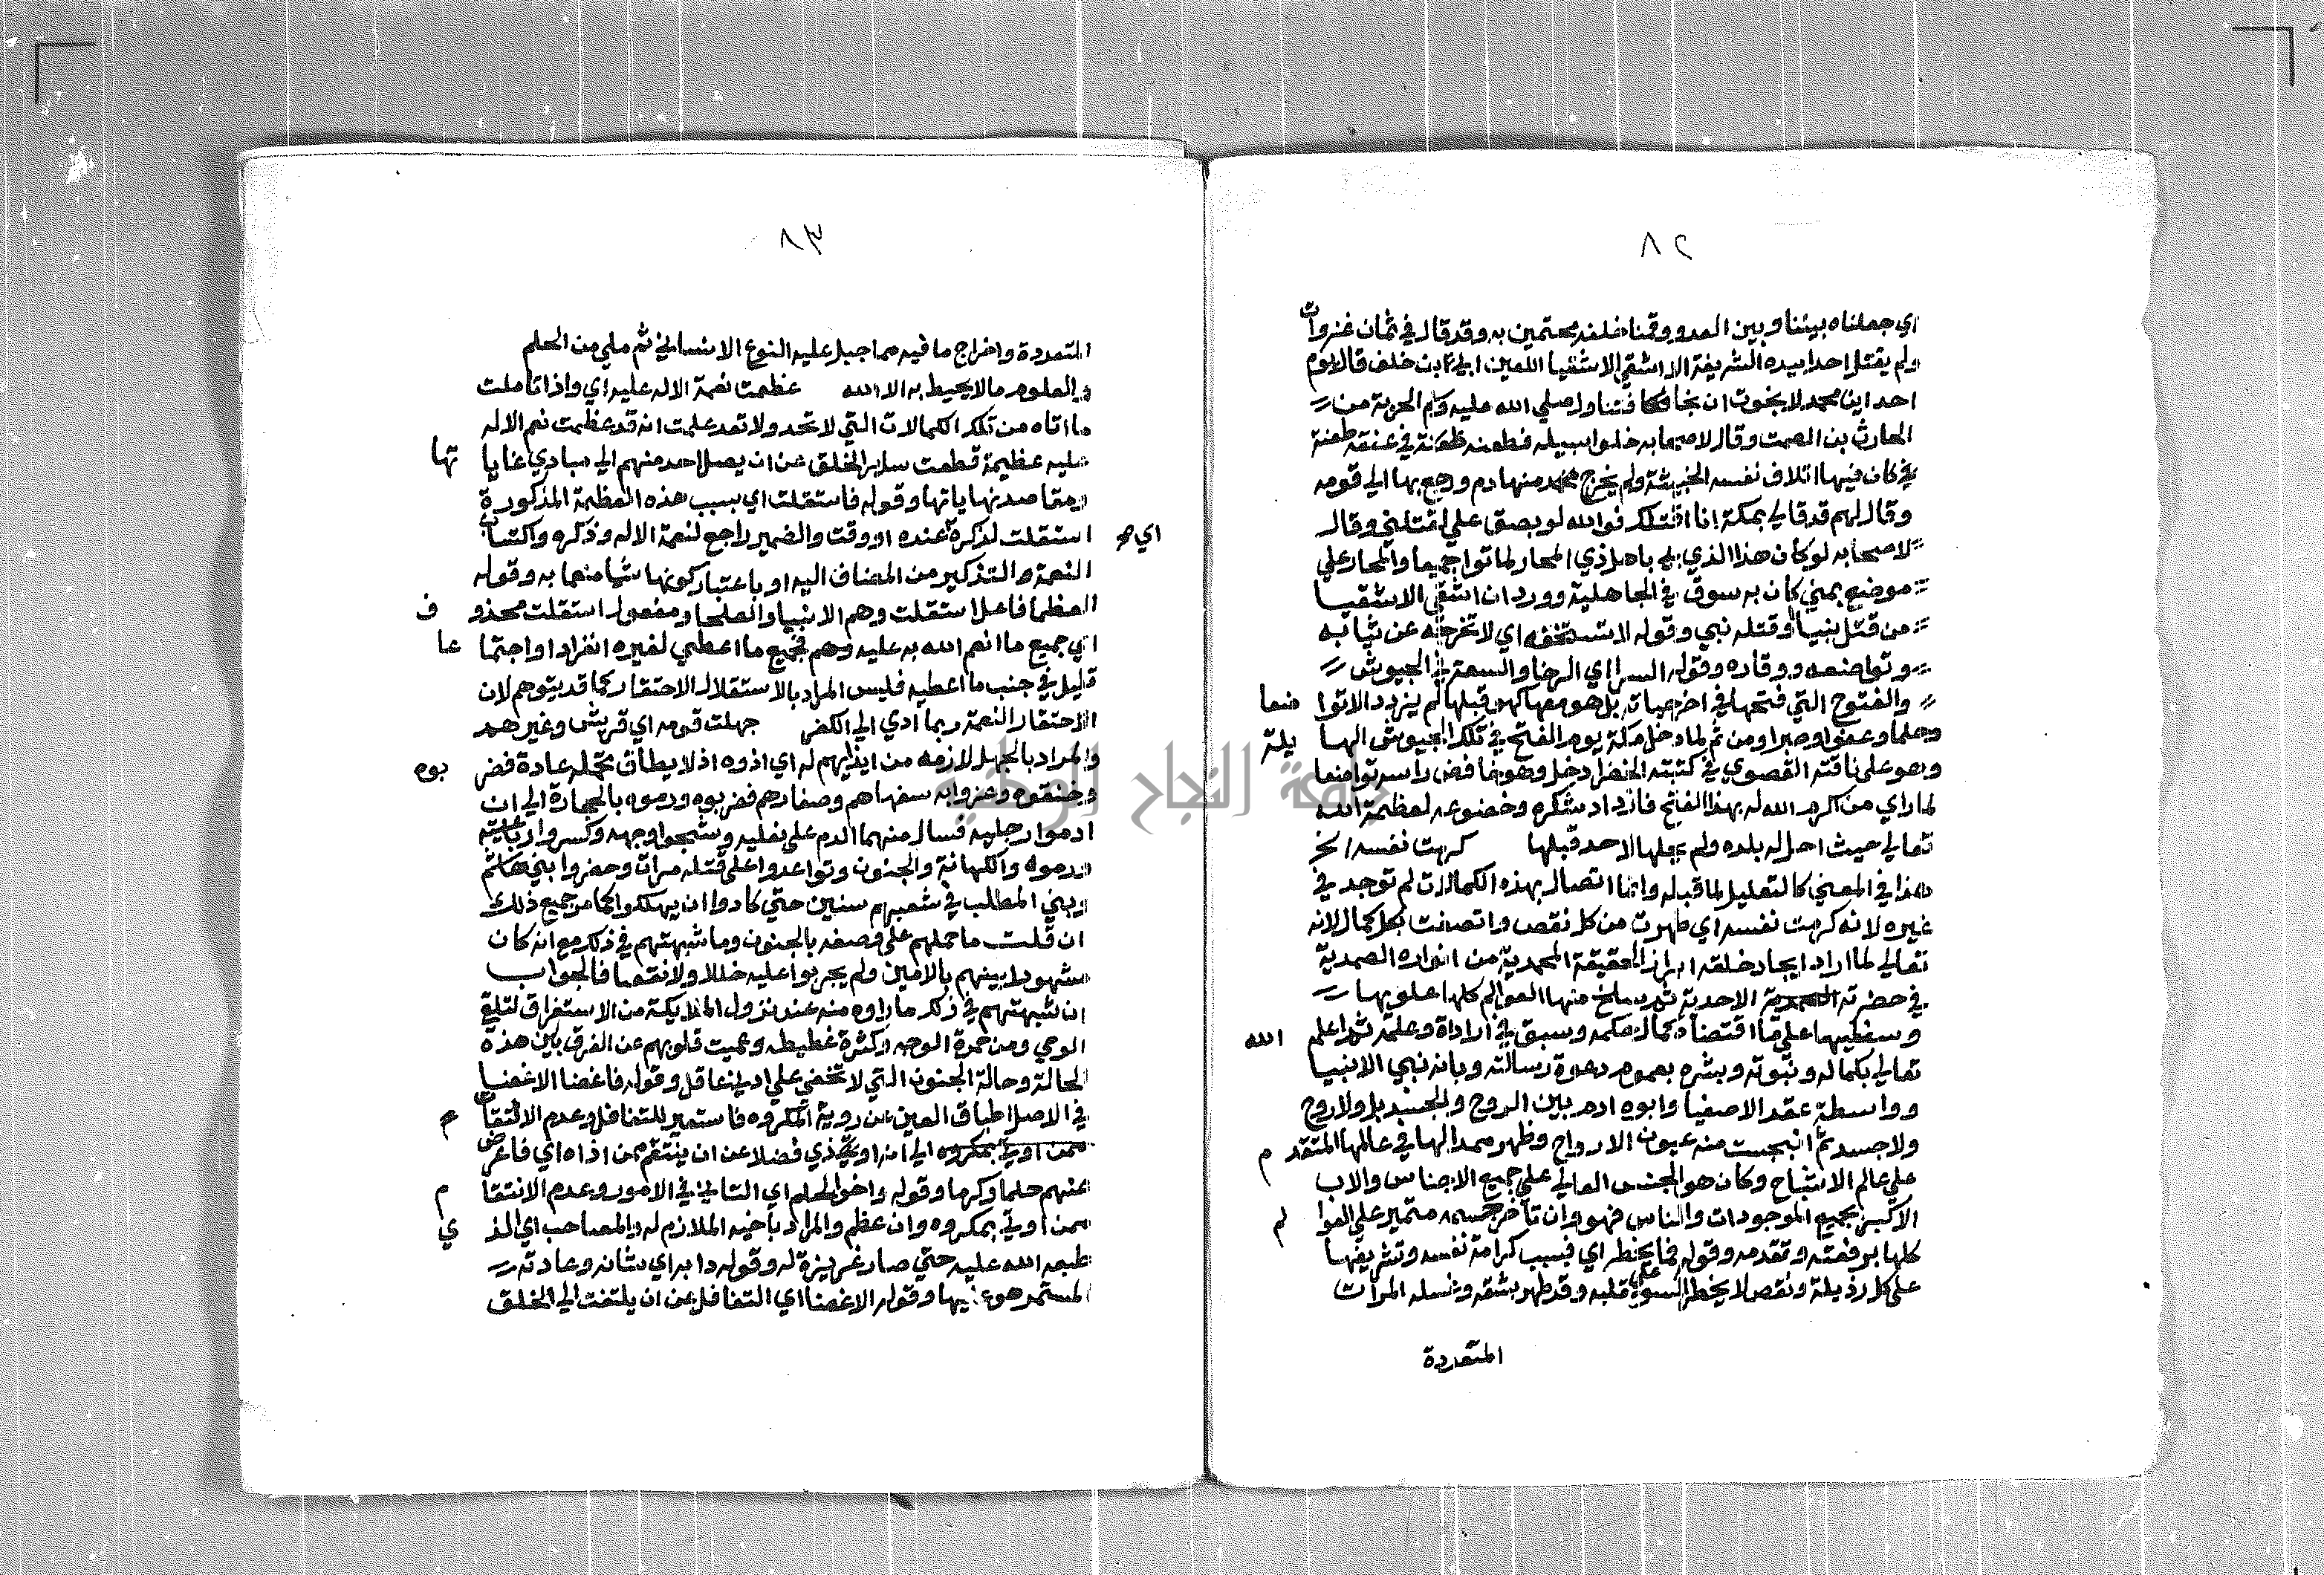 ٨٢
اي جعلناه بيننا وبين العدو ووقفنا خلفه محتمين به وقد قال في ثمان غزوات
ولم يقتل احدا بيده الشريفة الا اشقي الاشقيا اللعين ابي ابن خلف قال يوم
احد اين محمد لا نجوت ان نجا فتناول صلي الله عليه وسلم الحربة من
الحارث بن الصمت وقال لاصحابه خلوا سبيله فطعنه طعنة في عنقه طعنة
كان فيها اتلاف نفسه الخبيثة ولم يخرج منها دم ورجع بها الي قومه
وقال لهم قد قال لي بمكة انا اقتلك فوالله لو بصق علي لقتلني وقال
لاصحابه لو كان هذا الذي بي باهل ذي المجاز لماتوا جميعا والمجاز علي
موضع بمني كان به سوق في الجاهلية وورد ان اشقي الاشقيا
من قتل نبيا او قتله نبي وقوله لا تستخفه اي لا تخرجه عن ثباته
وتواضعه ووقاره وقوله السرا اي الرخا والسعة في الجيوش
والفتوح التي فتحها في اخر حياته بل هو معها كهو قبلها لم يزدد الا تواضعا
وحلما وعفوا وصبرا ومن ثم لما دخل مكة يوم الفتح في تلك الجيوش الهايلة
وهو علي ناقته القصوي في كتبته الخضرا دخل وهو خافض راسه تواضعا
لما راي من اكرام الله له بهذا الفتح فازداد شكره وخضوعه لعظمة الله
تعالي حيث احل له بلده ولم يحلها لاحد قبلها كرمت نفسه الخ
هذا في المعني كالتعليل لما قبله وانما اتصال بهذه الكمالات لم توجد في
غيره لانه كرمت نفسه اي طهرت من كل نقص واتصفت بكل كمال لانه
تعالي لما اراد ايجاد خلقه ابرز الحقيقة المحمدية من انواره الصمدية
في حضرته الاحدية ثم سلخ منها العوالم كلها علويها
وسفليها علي ما اقتضاه كمال حكمه وسبق في ارادة وعلمه ثم اعلم الله
تعالي بكماله ونبوته وبشره بعموم دعوة رسالته وبانه نبي الانبيا
وواسطة عقد الاصفيا وابوه ادم بين الروح والجسد بل ولا روح
ولا جسد ثم انبجست منه عيون الارواح وظهر ممدا لها في عالمها المتقدم
علي عالم الاشباح وكان هو الجنس العالي علي جميع الاجناس والاب
الاكبر لجميع الموجودات والناس فهو وان تاخر جسمه متميز علي العوالم
كلها برفعته وتقدمه وقوله فما يخطر اي فبسبب كرامة نفسه وتشريفها
علي كل رذيلة ونقص لا يخطر السوء علي قلبه وقد طهر بشقه وغسله المرات
المتعددة
٨٣
المتعددة واخراج ما فيه مما جبل عليه النوع الانساني ثم ملي من الحلم
والعلوم ما لا يحيط به الا الله عظمت نعمة الاله عليه اي واذا تاملت
ما اتاه من تلك الكمالات التي لا تحد ولا تعد علمت انه قد عظمت نعم الاله
عليه عظيمة قطعت ساير الخلق عن ان يصل احد منهم الي مبادي غاياتها
ومقاصد نهاياتها وقوله فاستقلت اي بسبب هذه العظمة المذكورة
استقلت لذكره عنده او وقت والضمير راجع لنعمة الاله وذكره واكتسات اي هو
النعمة والتذكير من المضاف اليه او باعتبار كونها شيا منعما به وقوله
العظما فاعل استقلت وهم الانبيا والصلحا ومفعول استقلت محذوف
اي جميع ما انعم الله به عليه وهم فجميع ما اعطي لغيره انفرادا واجتماعا
قليل في جنب ما اعطيه فليس المراد بالاستقلال الاحتقار كما قد يتوهم لان
الاحتقار النعمة ربما ادي الي الكفر جهلت قومه اي قريش وغيرهم
والمراد بالجهل لازمه من ايذايهم له اي اذوه اذ لا يطاق تحمله عادة فضربوه
وخنقوه وغزوا به سفهاهم وصغارهم فضربوه ورموه بالحجارة الي ان
ادموا رجليه فسال منهما الدم علي نعليه وشجوا وجهه وكسروا رباعيته
ورموه والكهانة والجنون وتواعدوا علي قتله مرات وحصروا بني هاشم
وبني المطلب في شعبهم سنين حتي كادوا ان يهلكوا كما مر جميع ذلك
ان قلت ما حملهم علي وصفه بالجنون وما شبهتهم في ذلك مع انه كان
مشهودا بينهم بالامين ولم يجربوا عليه خللا ولا نقصا فالجواب
ان شبهتهم في ذلك ما راوه منه عند نزول الملايكة من الاستغراق لتلقي
الوحي ومن حمرة الوجه وكثرة غطيطه وعميت قلوبهم عن الفرق بين هذه
الحالة وحالة الجنون التي لا تخفي علي ادني عاقل وقوله فاغضا الاغضا
في الاصل اطباق العين عن روية المكروه فاستعير للتغافل وعدم الالتفات م
ممن اوتي بمكروه الي انه اوذي فضلا عن ان ينتقم ممن اذاه اي فاعرض
عنهم حلما وكرما وقوله واخو الحلم اي التاني في الامور وعدم الانتقام
ممن اوتي بمكروه وان عظم والمراد باخيه الملازم له والمصاحب اي الذي
طبعه الله عليه حتي صار غريزة له وقوله دابه اي شانه وعادته
المستمر هو عليها وقوله الاغضا اي التغافل عن ان يلتفت الي الخلق
جامعة النجاح الوطنية